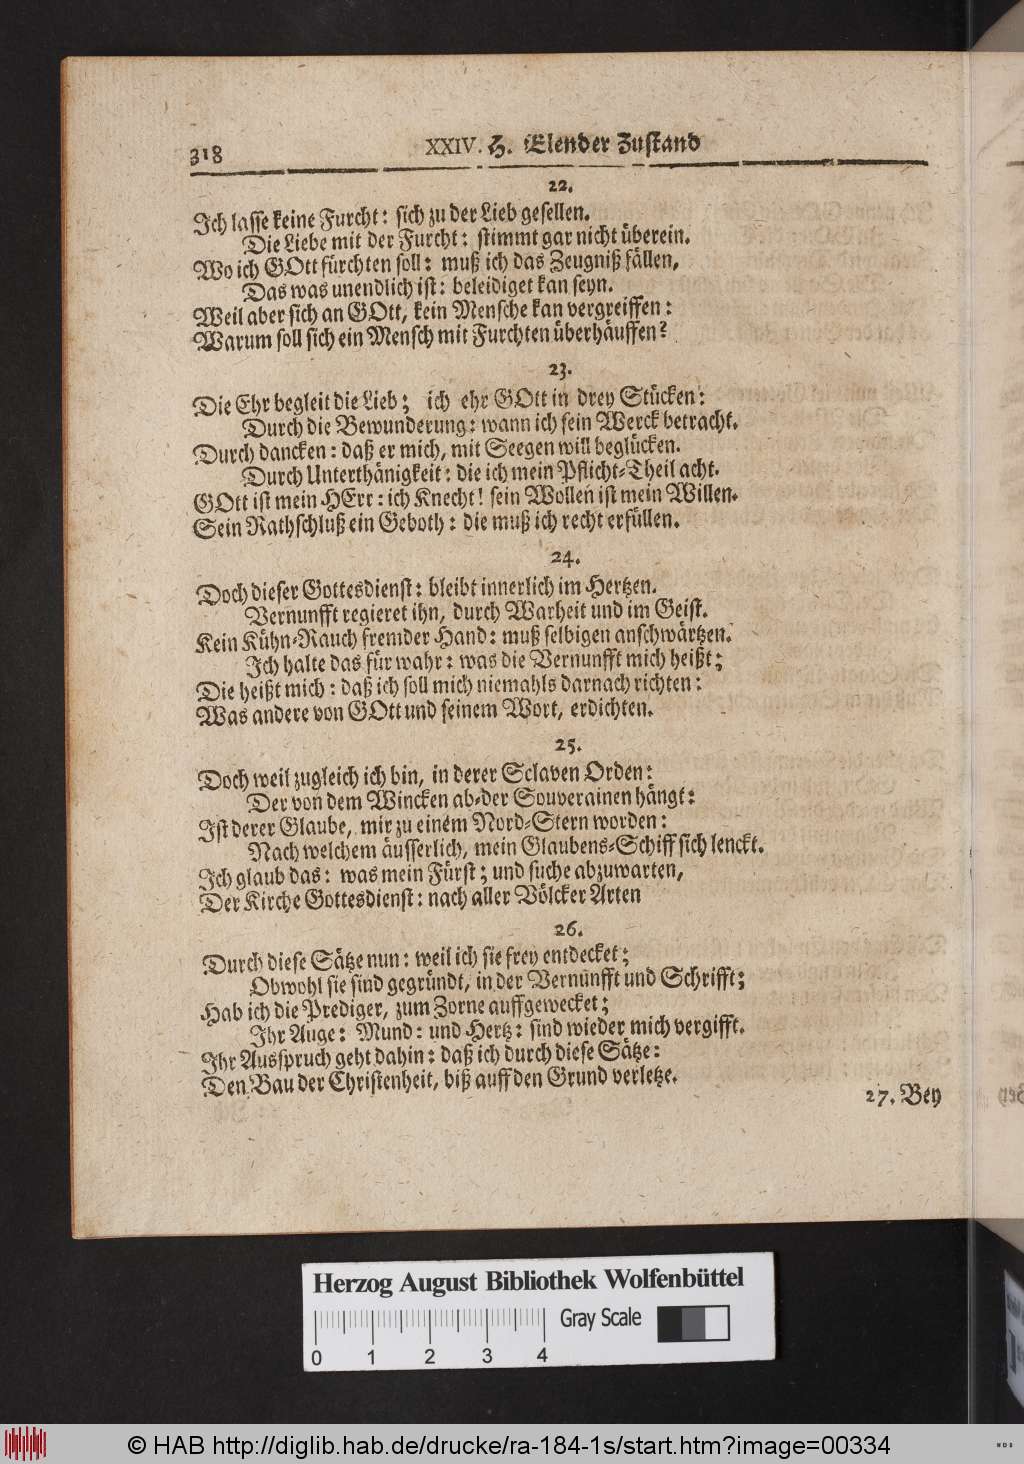 318
XXIV. H. Elender Zustand
22.
Ich lasse keine Furcht: sich zu der Lieb gesellen.
Die Liebe mit der Furcht: stimmt gar nicht überein.
Wo ich GOtt fürchten soll: muß ich das Zeugniß fällen,
Das was unendlich ist: beleidiget kan seyn.
Weil aber sich an GOtt, kein Mensche kan vergreiffen:
Warum soll sich ein Mensch mit Furchten überhäuffen?
23.
Die Ehr begleit die Lieb; ich ehr GOtt in drey Stücken:
Durch die Bewunderung: wann ich sein Werck betracht.
Durch dancken: daß er mich, mit Seegen will beglücken.
Durch Unterthänigkeit: die ich mein Pflicht-Theil acht.
GOtt ist mein HErr: ich Knecht! sein Wollen ist mein Willen.
Sein Rathschluß ein Geboth: die muß ich recht erfüllen.
24.
Doch dieser Gottesdienst: bleibt innerlich im Hertzen.
Vernunfft regieret ihn, durch Warheit und im Geist.
Kein Kühn-Rauch fremder Hand: muß selbigen anschwärtzen.
Ich halte das für wahr: was die Vernunfft mich heißt;
Die heißt mich: daß ich soll mich niemahls darnach richten:
Was andere von GOtt und seinem Wort, erdichten.
25.
Doch weil zugleich ich bin, in derer Sclaven Orden:
Der von dem Wincken ab-der Souverainen hängt:
Ist derer Glaube, mir zu einem Nord-Stern worden:
Nach welchem äusserlich, mein Glaubens-Schiff sich lenckt.
Ich glaub das: was mein Fürst; und suche abzuwarten,
Der Kirche Gottesdienst: nach aller Völcker Arten
26.
Durch diese Sätze nun: weil ich sie frey entdecket;
Obwohl sie sind gegründt, in der Vernunfft und Schrifft;
Hab ich die Prediger, zum Zorne auffgewecket;
Ihr Auge: Mund: und Hertz: sind wieder mich vergifft.
Ihr Ausspruch geht dahin: daß ich durch diese Sätze:
Den Bau der Christenheit, biß auff den Grund verletze.
27. Bey
Herzog August Bibliothek Wolfenbüttel
Gray Scale
0 1 2 3 4
© HAB http://diglib.hab.de/drucke/ra-184-1s/start.htm?image=00334